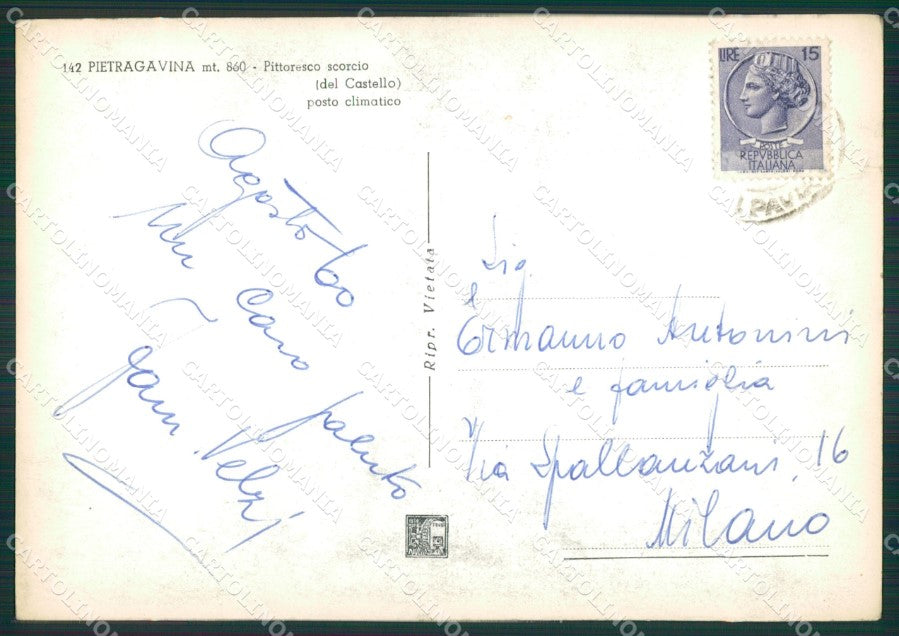 142 PIETRAGAVINA mt. 860 - Pittoresco scorcio
(del Castello)
posto climatico
LIRE 15
POSTE
REPVBBLICA
ITALIANA
PAV
Agosto 60
Un caro saluto
Fam. Velzi
Ripr. Vietata
Sig.
Ermanno Antonini
e famiglia
Via Spallanzani, 16
Milano
CARTOLINOMANIA